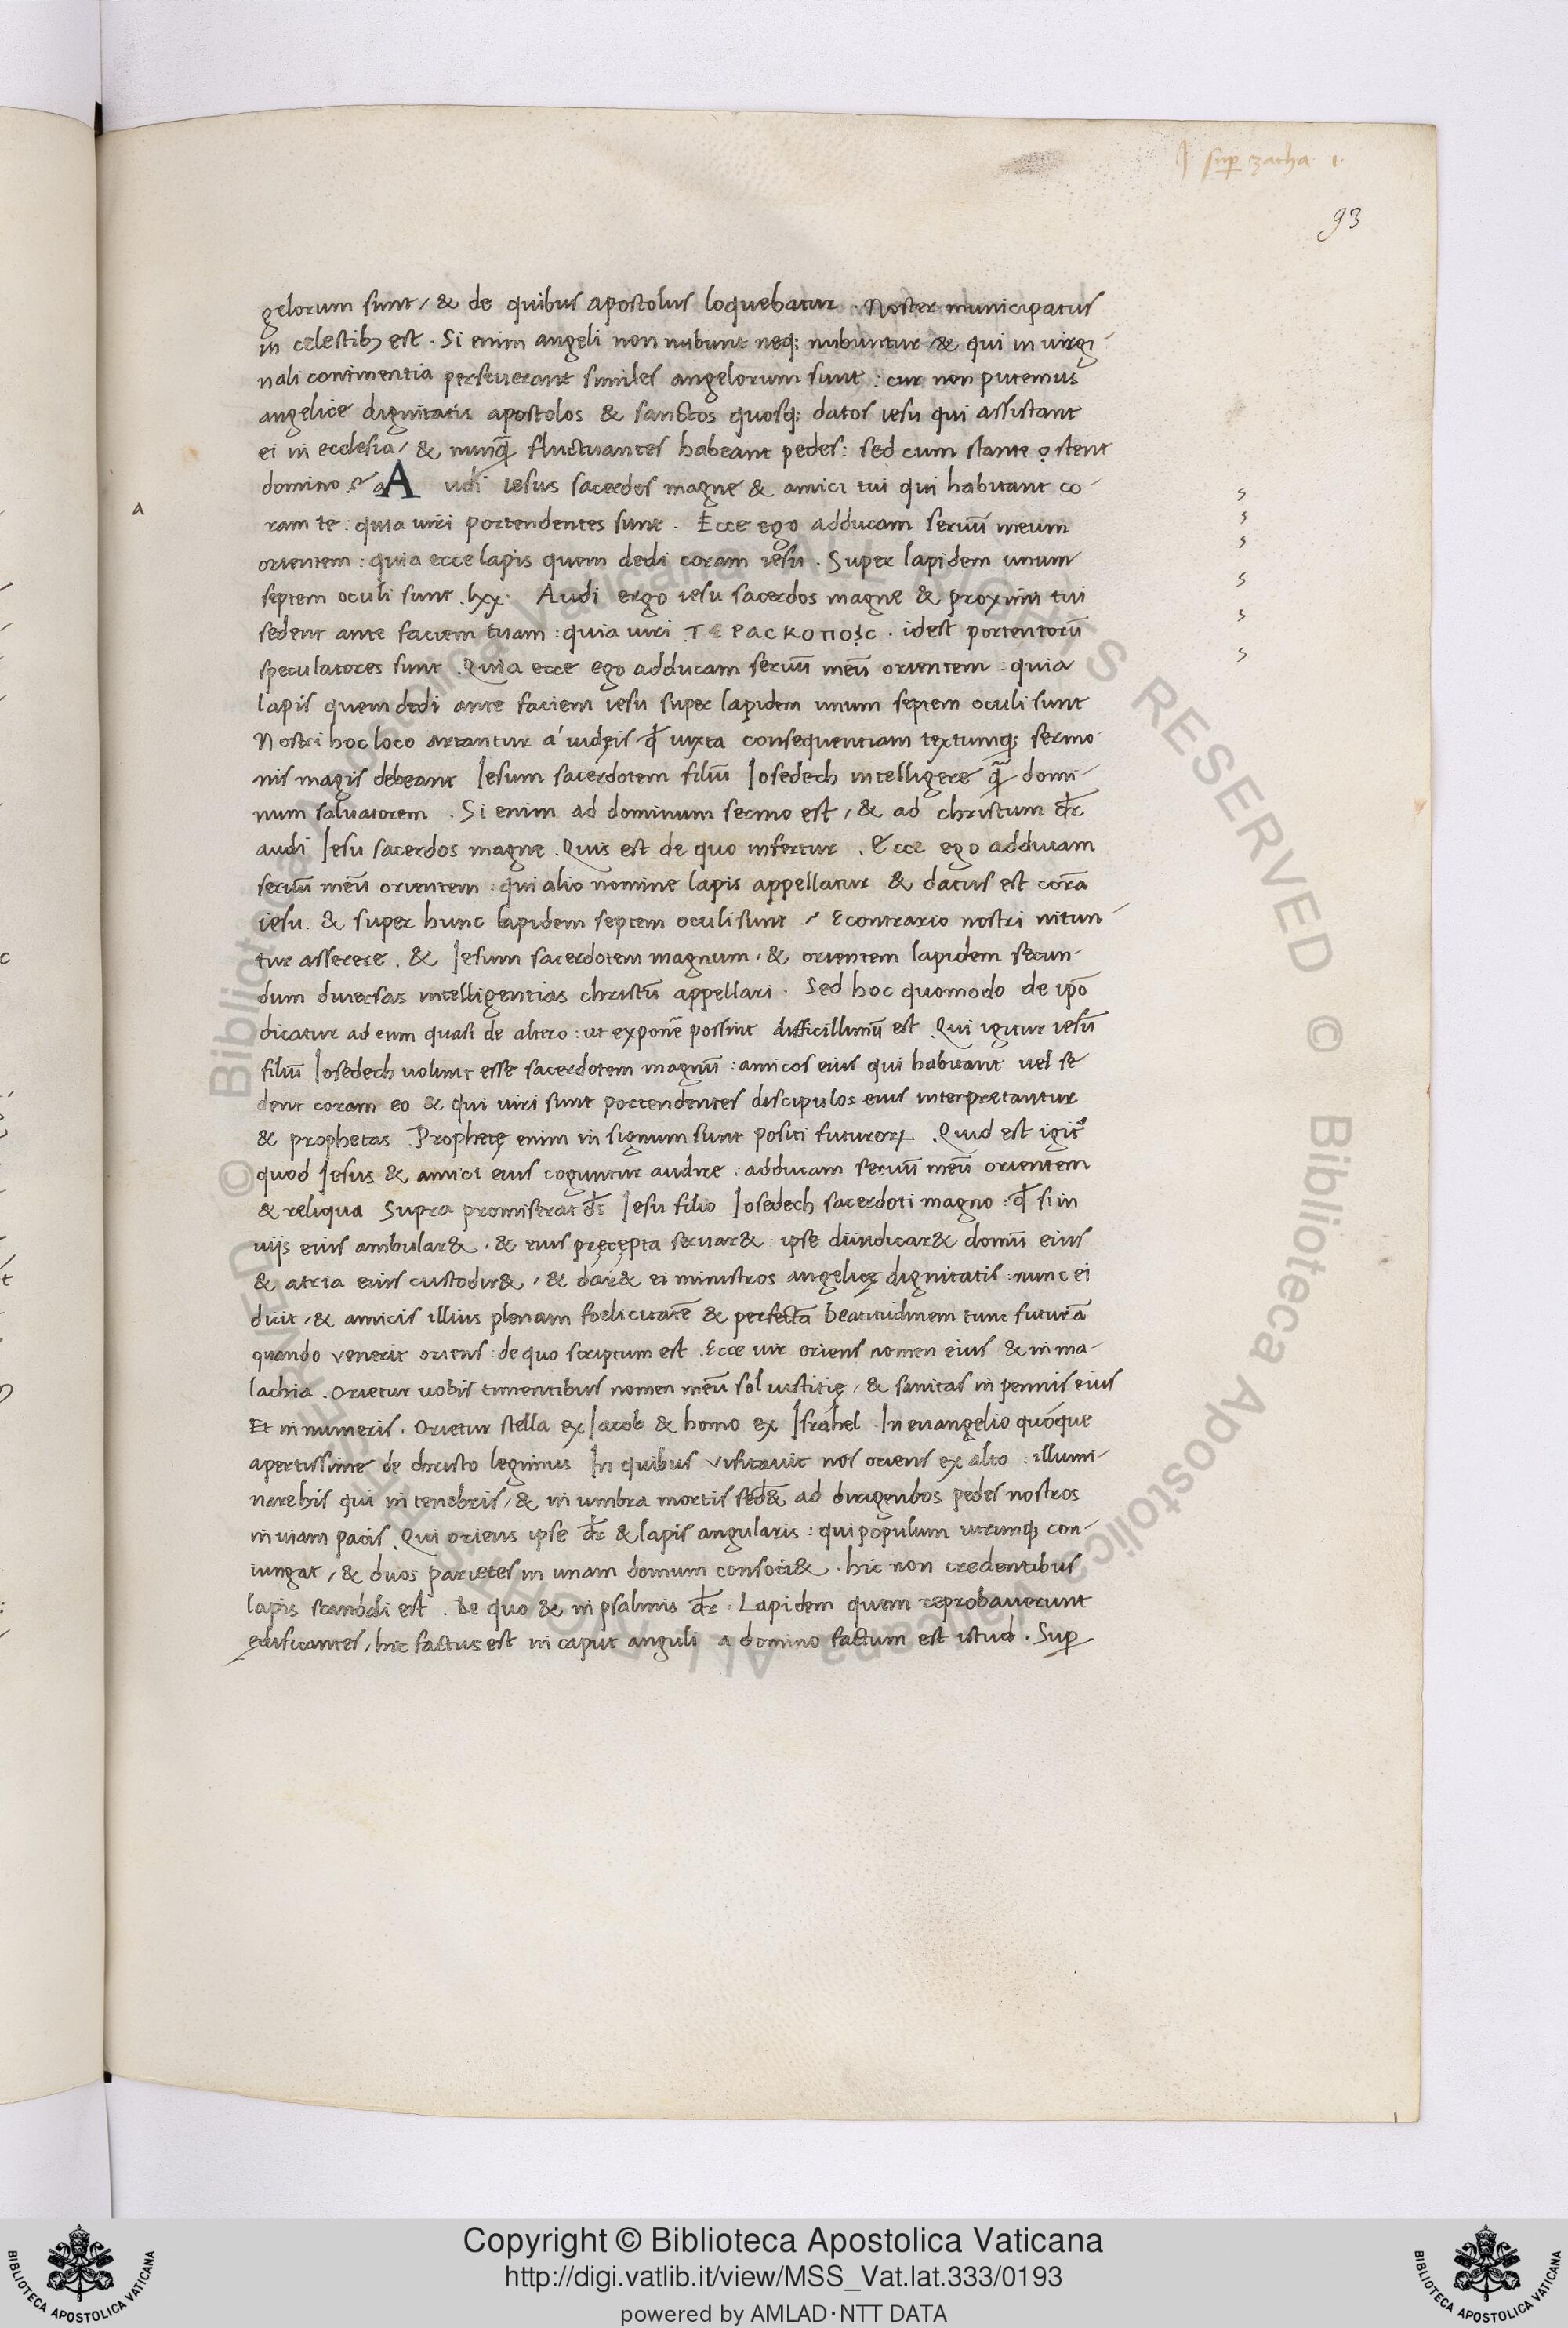 sup zacha. 1.
93
gelorum sunt, & de quibus apostolus loquebatur. Noster municipatus
in celestib; est. Si enim angeli non nubunt neq; nubuntur & qui in virgi-
nali continentia perseuerant similes angelorum sunt: cur non putemus
angelice dignitatis apostolos & sanctos quosq; datos iesu qui assistant
ei in ecclesia, & nunq̃ fluctuantes habeant pedes: sed cum stante stent
domino. A udi iesus sacerdos magne & amici tui qui habitant co-
ram te: quia uiri portendentes sunt. Ecce ego adducam seruũ meum
orientem: quia ecce lapis quem dedi coram iesu. Super lapidem unum
septem oculi sunt. lxx. Audi ergo iesu sacerdos magne & proximi tui
sedent ante faciem tuam: quia uiri ΤΕΡΑCΚΟΠΟΙC. idest portentorũ
speculatores sunt. Quia ecce ego adducam seruũ meũ orientem: quia
lapis quem dedi ante faciem iesu super lapidem unum septem oculi sunt
Nostri hoc loco artantur á iudeis qđ iuxta consequentiam textumq; sermo-
nis magis debeant Iesum sacerdotem filiũ Iosedech intelligere q̃ domi-
num saluatorem. Si enim ad dominum sermo est, & ad christum dr̃
audi Iesu sacerdos magne. Quis est de quo infertur. Ecce ego adducam
seruũ meũ orientem: qui alio nomine lapis appellatur & datus est corã
iesu. & super hunc lapidem septem oculi sunt. Econtrario nostri nitun-
tur asserere. & Iesum sacerdotem magnum, & orientem lapidem secun-
dum diuersas intelligentias christũ appellari. Sed hoc quomodo de ip̃o
dicatur ad eum quasi de altero: ut exponẽ possint difficillimũ est. Qui igitur iesũ
filiũ Iosedech uolunt esse sacerdotem magnũ: amicos eius qui habitant uel se
dent coram eo & qui uiri sunt portendentes discipulos eius interpretantur
& prophetas Prophetę enim in signum sunt positi futuroꝝ. Quid est igit᷑
quod Iesus & amici eius coguntur audire: adducam seruũ meũ orientem
& reliqua Supra promiserat ds̃ Iesu filio Iosedech sacerdoti magno: qđ si in
uijs eius ambular&, & eius pręcępta seruar& ipse diiudicar& domũ eius
& atria eius custodir&, & dar& ei ministros angelicę dignitatis: nunc ei
dicit, & amicis illius plenam foelicitatẽ & perfectã beatitudinem tunc futurã
quando venerit oriens: de quo scriptum est. Ecce uir oriens nomen eius & in ma-
lachia. Orietur uobis timentibus nomen meũ sol iustitię, & sanitas in pennis eius
Et in numeris. Orietur stella ex Iacob & homo ex Israhel In euangelio quóque
apertissime de christo legimus In quibus visitauit nos oriens ex alto: illumi-
nare his qui in tenebris, & in umbra mortis sed& ad dirigendos pedes nostros
in uiam pacis. Qui oriens ipse dr̃ & lapis angularis: qui populum utrunq; con-
iungat, & duos parietes in unam domum consoci&. hic non credentibus
lapis scandali est. De quo & in psalmis dr̃. Lapidem quem reprobauerunt
ędificantes, hic factus est in caput anguli a domino factum est istud. Sup
a
s
s
s
s
s
s
Copyright © Biblioteca Apostolica Vaticana
http://digi.vatlib.it/view/MSS_Vat.lat.333/0193
powered by AMLAD·NTT DATA
BIBLIOTECA APOSTOLICA VATICANA
BIBLIOTECA APOSTOLICA VATICANA